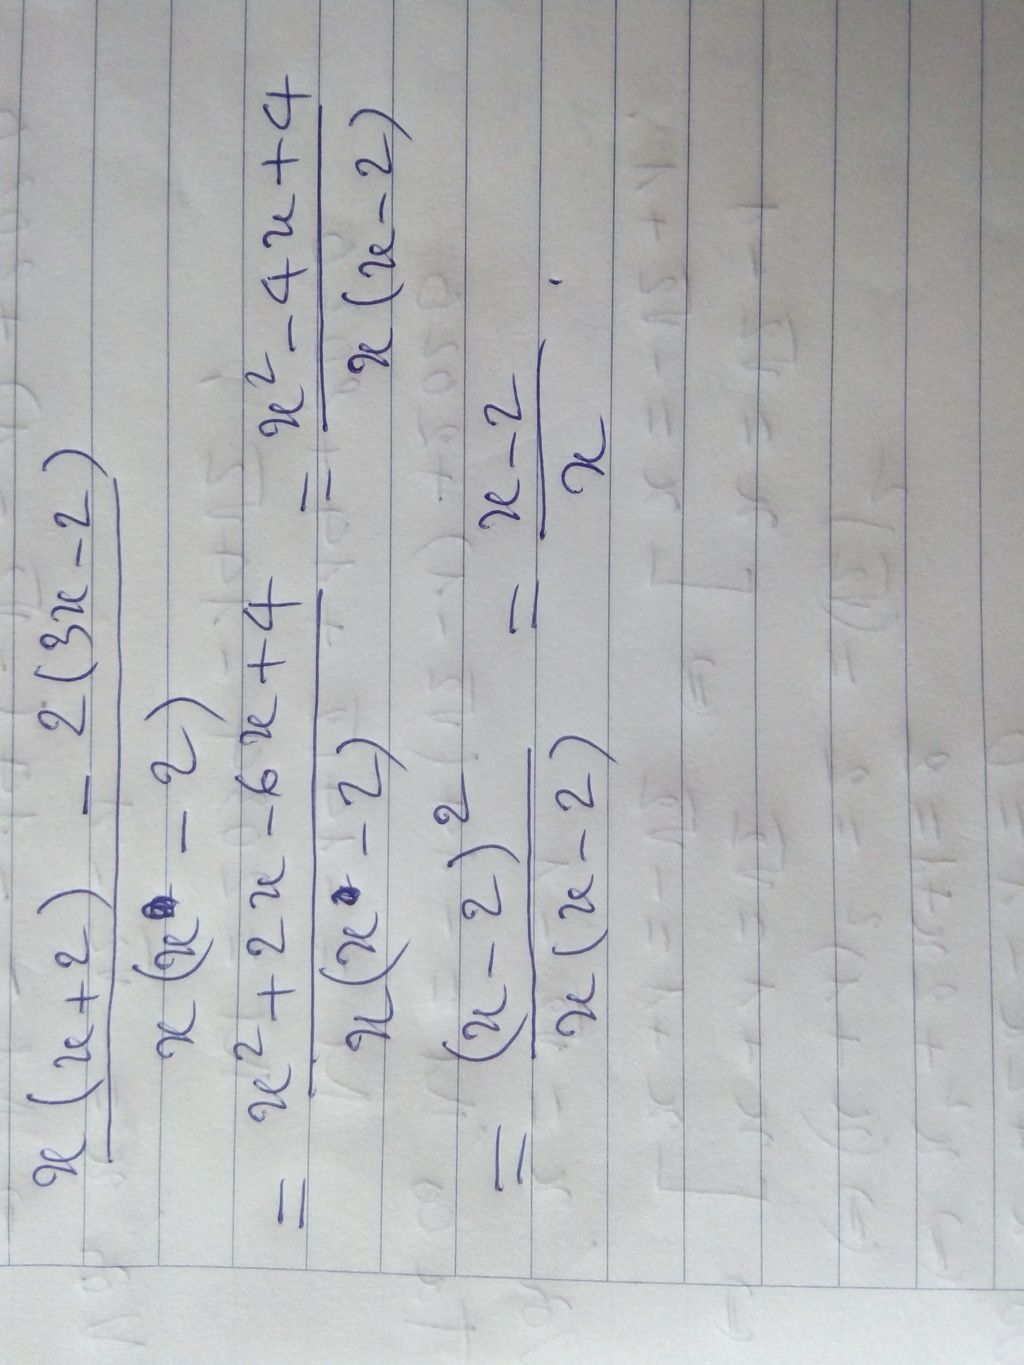 x(x+2) - 2(3x-2)
x(x-2)
= x²+2x-6x+4 = x²-4x+4
x(x-2) x(x-2)
= (x-2)² = x-2
x(x-2) x .